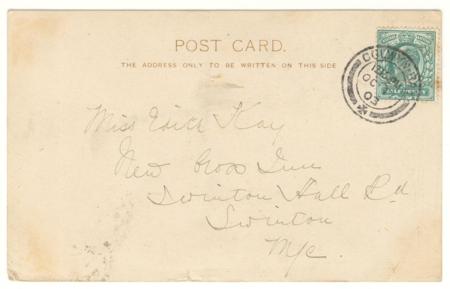 POST CARD.
THE ADDRESS ONLY TO BE WRITTEN ON THIS SIDE
OC
03
HALFPENNY
Miss Edith Kay
New Cross Inn
Swinton Hall Rd
Swinton
M/c.